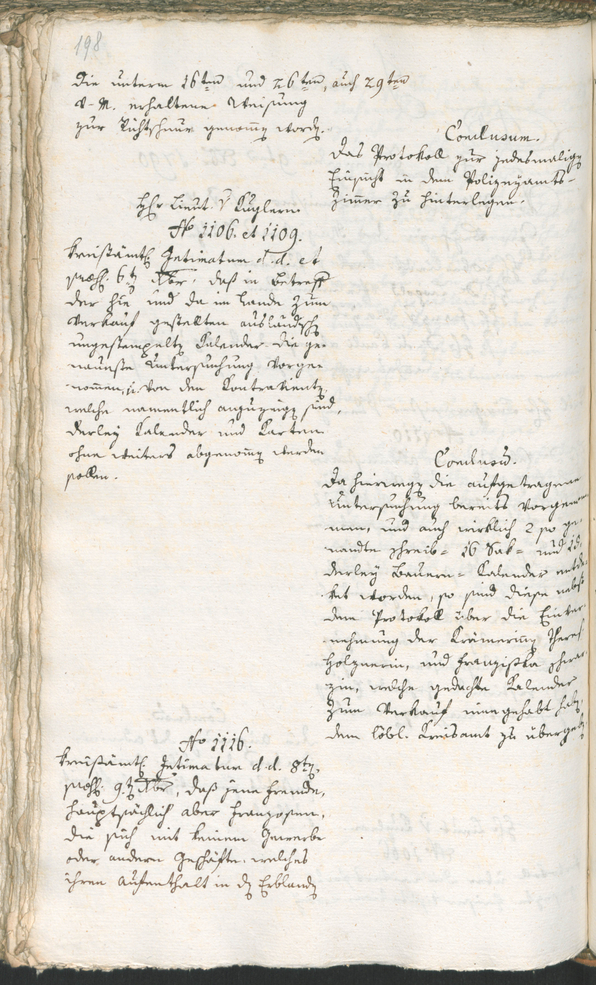 198
die unterm 16ten und 26ten, auch 29ten
v. M. erhaltene Weisung
zur Richtschnur genom̄en word.
Conclusum.
Das Protokoll zur jedesmaligen
Einsicht in dem Polizeyamts-
Zimmer zu hinterlegen.
Hr Lieut. v Kuglern
No 1106. et 1109.
kreisämtl. Intimatum d.d. et
præs. 6t Xbr, daß in Betreff
der hie und da im Lande zum
Verkauf gestellten ausländisch
ungestempelten Kalender die ge-
naueste Untersuchung vorge-
nommen, u. von den Contravenienten
welche namentlich anzuzeigen sind,
derley Kalender und Karten
ohne weiters abgenommen werden
sollen.
Conclusū.
Da hierwegen die aufgetragene
Untersuchung bereits vorgenom-
men, und auch wirklich 2 so ge-
nandte Schreib- 16 Sak- und 18
derley Bauern- Kalender entde-
ket worden, so sind diese nebst
dem Protokoll über die Einver-
nehmung der Krämerinen Theres
Holznerin, und Franziska
welche gedachte Kalender
zum Verkauf innegehabt haben,
dem löbl. Kreisamt zu übergeben
No 1116.
kreisämtl. Intimatum d.d. 8ten
præs. 9. Xbr, daß jene Fremde,
hauptsächlich aber Franzosen,
die sich mit keinem Gewerbe
oder andern Geschäfte, welches
ihren Aufenthalt in den Erblanden